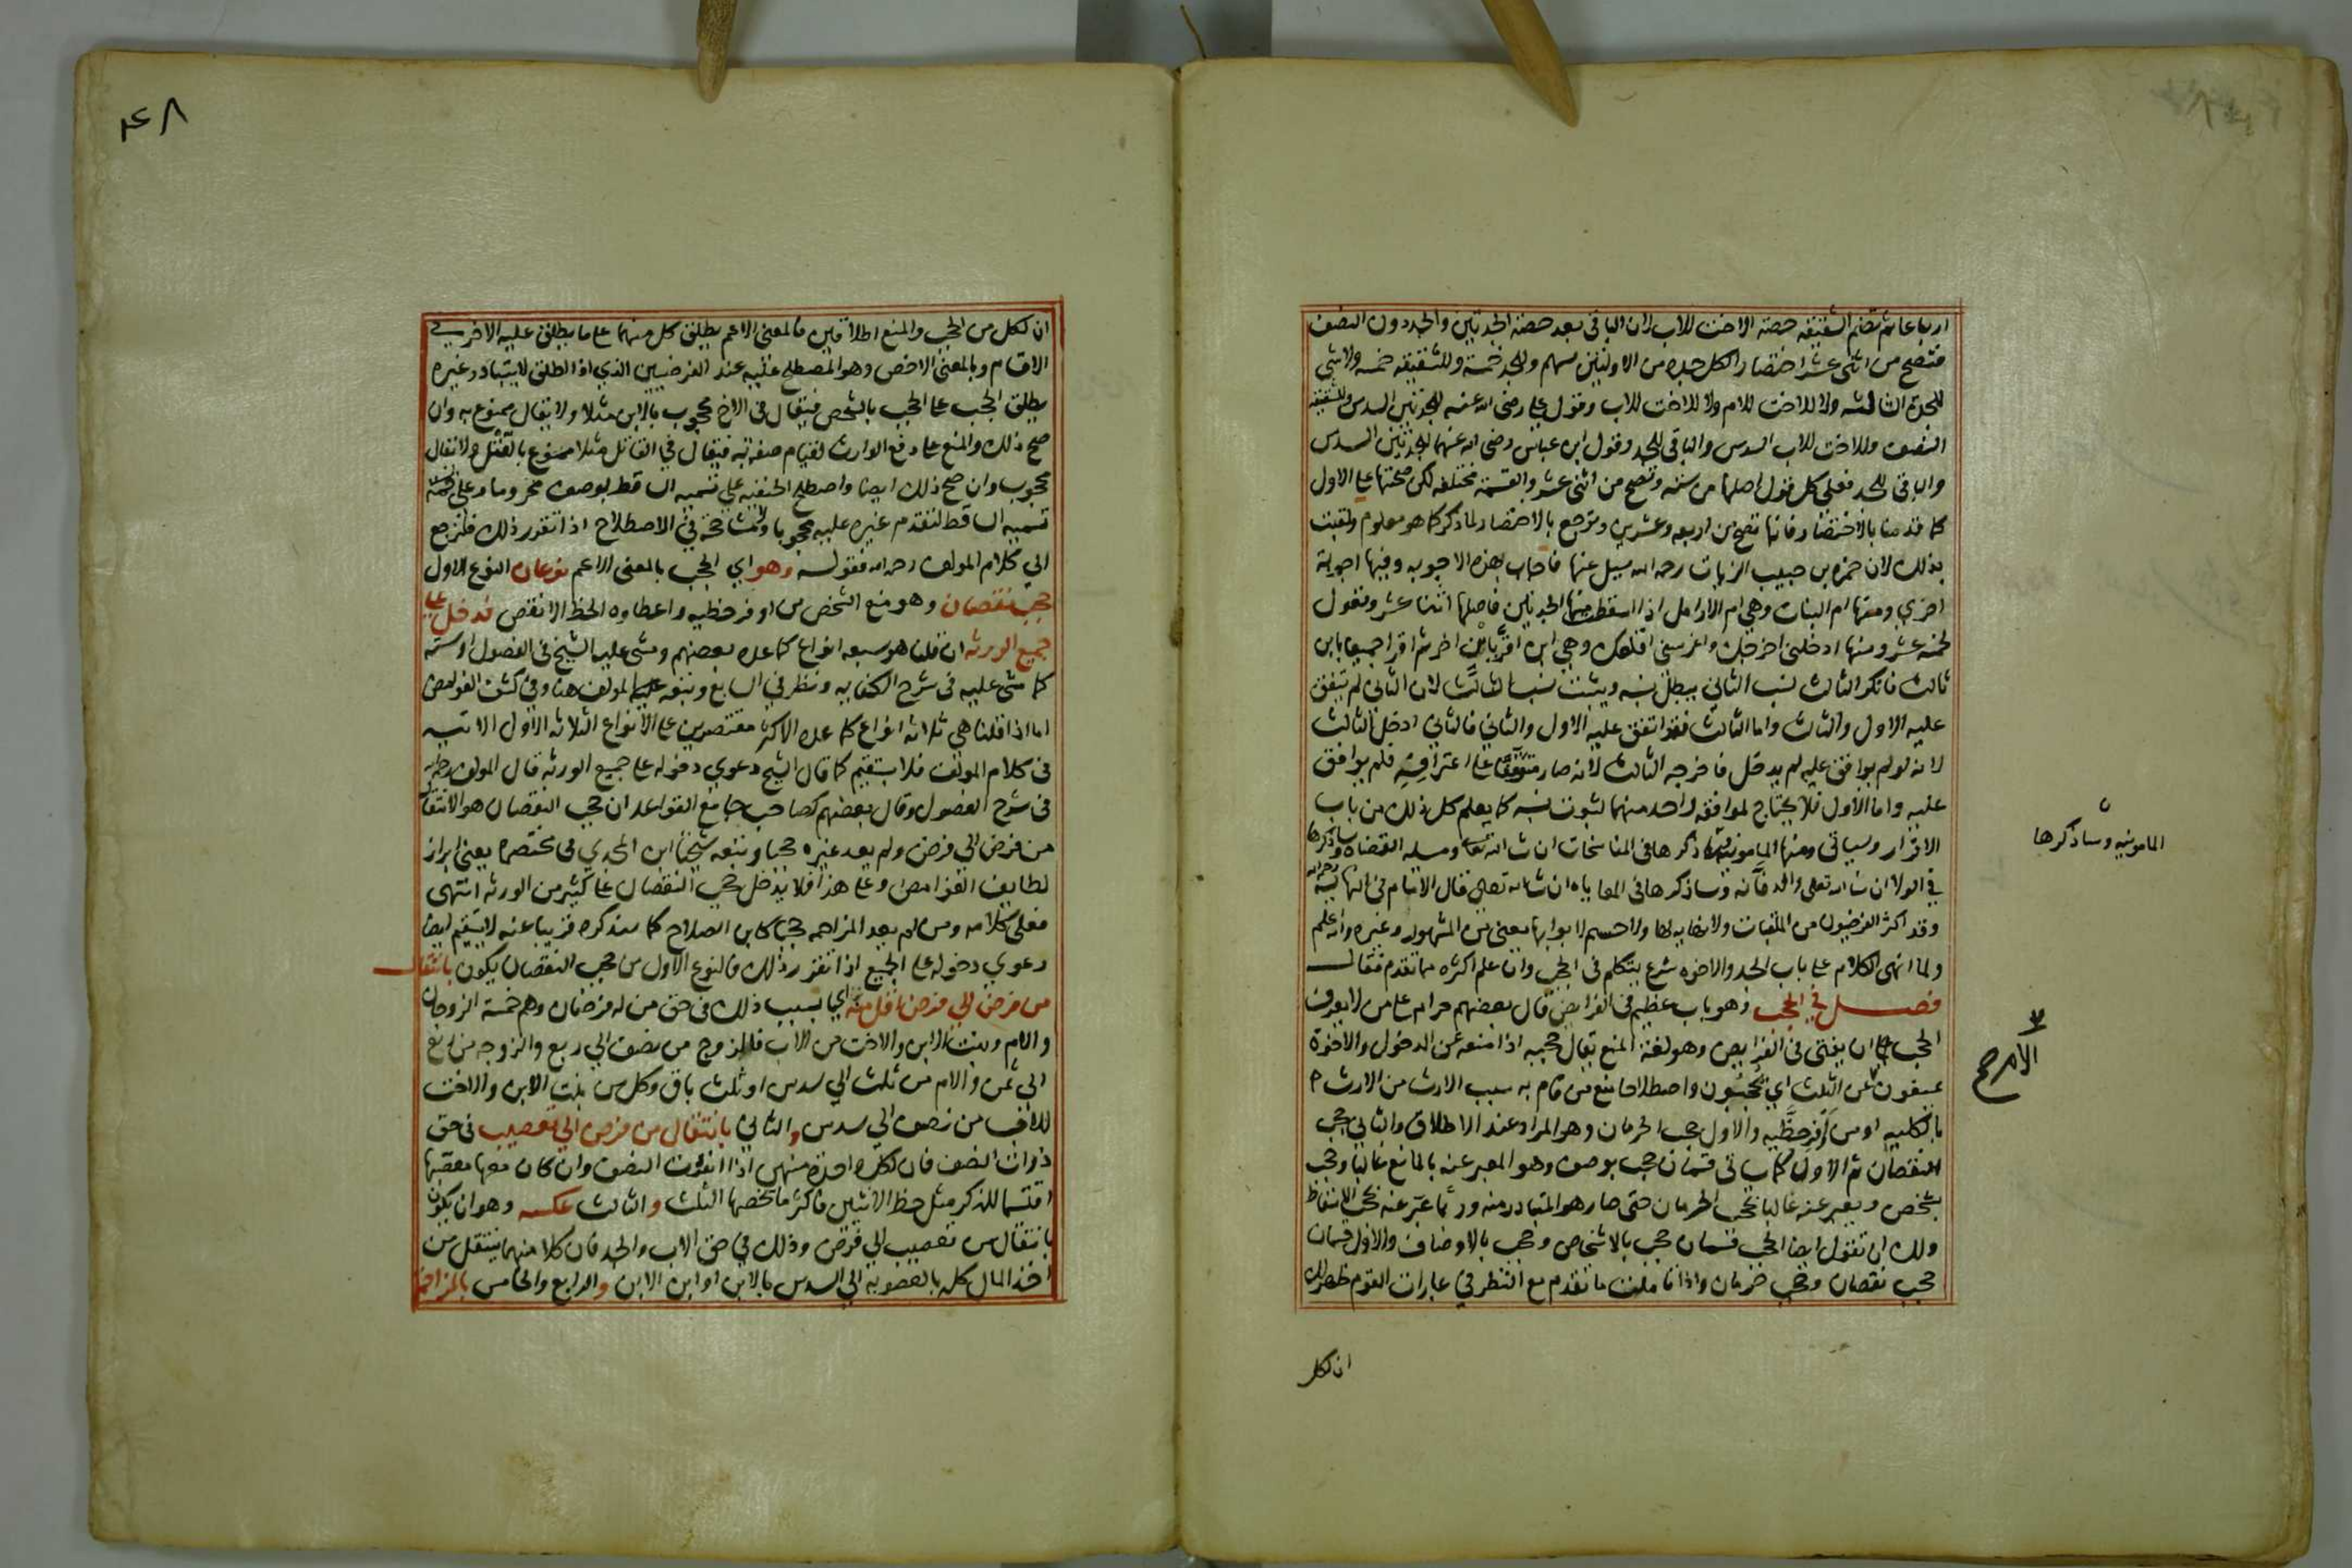 ارباعا ثم تضم الشقيقه حصة الاخت للاب لان الباقي بعد حصة الجدتين والجد دون النصف
فتصح من اثنى عشر اختصارا لكل جده من الاولتين سهم وللجد خمسة وللشقيقه خمسه ولا شي
للجدة الثالثه ولا للاخت للام ولا للاخت للاب وقول علي رضي الله عنه للجدتين السدس وللشقيقة
النصف وللاخت للاب السدس والباقي للجد وقول ابن عباس رضي الله عنهما للجدتين السدس
والباقي للجد فعلى كل قول اصلها من سته وتصح من اثنى عشر والقسمة مختلفه لكن صحتها على الاول
كما قدمنا بالاختصار فانها تصح من اربعه وعشرين وترجع بالاختصار لما ذكر كما هو معلوم ولقبت
بذلك لان حمزه بن حبيب الزيات رحمه الله سيل عنها فاجاب بهذه الاجوبه وفيها اجوبة
اخري ومنها ام البنات وهي ام الارامل اذا اسقط منها الجدتين فاصلها اثنا عشر وتعول
لخمسه عشر ومنها ادخلني اخرجك وهي ابن اقر بابن اخر ثم اقرا جميعا بابن
ثالث فانكر الثالث نسب الثاني يبطل نسبه ويثبت نسب الثالث لان الثاني لم يتفق
عليه الاول والثالث واما الثالث فقد اتفق عليه الاول والثاني فالثاني ادخل الثالث
لانه لو لم يوافق عليه لم يدخل فاخرجه الثالث لانه صار متوقفا على اعترافه فلم يوافق
عليه واما الاول فلا يحتاج لموافقه واحد منهما لثبوت نسبه كما يعلم كل ذلك من باب
الاقرار وسياتي ومنها المامونيه ذكرها في المناسخات ان شا الله تعالى ومسله القضاه وساذكرها
في الولا ان شا الله تعالى وساذكرها في المعاياه ان شا الله تعالى قال الامام في النهايه رحمه الله
وقد اكثر الفرضيون من الملقبات ولا نهايه لها ولا حسم لابوابها يعني من المشهور وغيره والله اعلم
ولما انهى الكلام على باب الجد والاخوه شرع يتكلم في الحجب وان علم اكثره مما تقدم فقال
فصل في الحجب وهو باب عظيم في الفرايض قال بعضهم حرام على من لا يعرف
الحجب ان يفتي في الفرايض وهو لغة المنع يقال حجبه اذا منعه عن الدخول والاخوة
عن الثلث اي يحجبون واصطلاحا منع من قام به سبب الارث من الارث
بالكليه او من اوفر حظيه والاول حجب الحرمان وهو المراد عند الاطلاق والثاني حجب
النقصان ثم الاول كما ياتي قسمان حجب بوصف وهو المعبر عنه بالمانع غالبا وحجب
بشخص ويعبر عنه غالبا بحجب الحرمان حتى صار هو المتبادر منه وربما عبر عنه بحجب الاسقاط
ولك ان تقول ايضا الحجب قسمان حجب بالاشخاص وحجب بالاوصاف والاول قسمان
حجب نقصان وحجب حرمان واذا تاملت ما تقدم مع النظر في عبارات القوم ظهر لك
ان لكل
المامونيه وساذكرها
الامر صح
٤٨
ان لكل من الحجب والمنع اطلاقين فالمعنى الاعم يطلق كل منهما على ما يطلق عليه الاخر في
الاقسام وبالمعنى الاخص وهو المصطلح عليه عند الفرضيين الذي اذا اطلق لا يتبادر غيره
يطلق الحجب على الحجب بالشخص فيقال في الاخ محجوب بالابن مثلا ولا يقال ممنوع به وان
صح ذلك والمنع على دفع الوارث لقيام صفة به فيقال في القاتل مثلا ممنوع بالقتل ولا يقال
محجوب وان صح ذلك ايضا واصطلح الحنفيه على تسميه الساقط بوصف محروما وعلى
تسميه الساقط لتقدم غيره عليه محجوبا ولا مشاحة في الاصطلاح اذا تقرر ذلك فلنرجع
الى كلام المولف رحمه الله فقوله وهو اي الحجب بالمعنى الاعم نوعان النوع الاول
حجب نقصان وهو منع الشخص من اوفر حظيه واعطاوه الحظ الانقص قد دخل على
جميع الورثه ان قلنا هو سبعه انواع كما عده بعضهم ومشى عليه الشيخ في الفصول او سته
كما مشى عليه في شرح الكفايه ونظر في السابع وتبعه عليه المولف هنا وفي كشف الغوامض
اما اذا قلنا هي ثلاثه انواع كما عده الاكثر مقتصرين على الانواع الثلاثه الاول الاتيه
في كلام المولف فلا يستقيم كما قال الشيخ دعوي دخوله على جميع الورثه قال المولف رحمه الله
في شرح الفصول وقال بعضهم كصاحب جامع القواعد ان حجب النقصان هو الانتقال
من فرض الي فرض ولم يعد غيره حجبا وتبعه شيخنا ابن المجدي في مختصره يعني ابراز
لطايف الغوامض وعلى هذا فلا يدخل حجب النقصان على كثير من الورثه انتهى
فعلى كلامه ومن لم يعد المزاحمه حجبا كابن الصلاح كما سنذكره قريبا عنه لا يستقيم ايضا
دعوي دخوله على الجميع اذا تقرر ذلك فالنوع الاول من حجب النقصان يكون بانتقال
من فرض الي فرض اقل منه اي بسبب ذلك في حق من له فرضان وهم خمسة الزوجان
والام وبنت الابن والاخت من الاب فللزوج من نصف الي ربع والزوجه من ربع
الي ثمن والام من ثلث الي سدس او ثلث باق وكل من بنت الابن والاخت
للاب من نصف الي سدس والثاني بانتقال من فرض الي تعصيب في حق
ذوات النصف فان لكل واحدة منهن اذا انفردت النصف وان كان معها معصبها
اقتسما للذكر مثل حظ الانثيين فاكثر ما يخصها الثلث والثالث عكسه وهو ان يكون
بانتقال من تعصيب الي فرض وذلك في حق الاب والجد فان كلا منهما ينتقل من
اخذ المال كله بالعصوبه الي السدس بالابن او ابن الابن والرابع والخامس بالمزاحمة